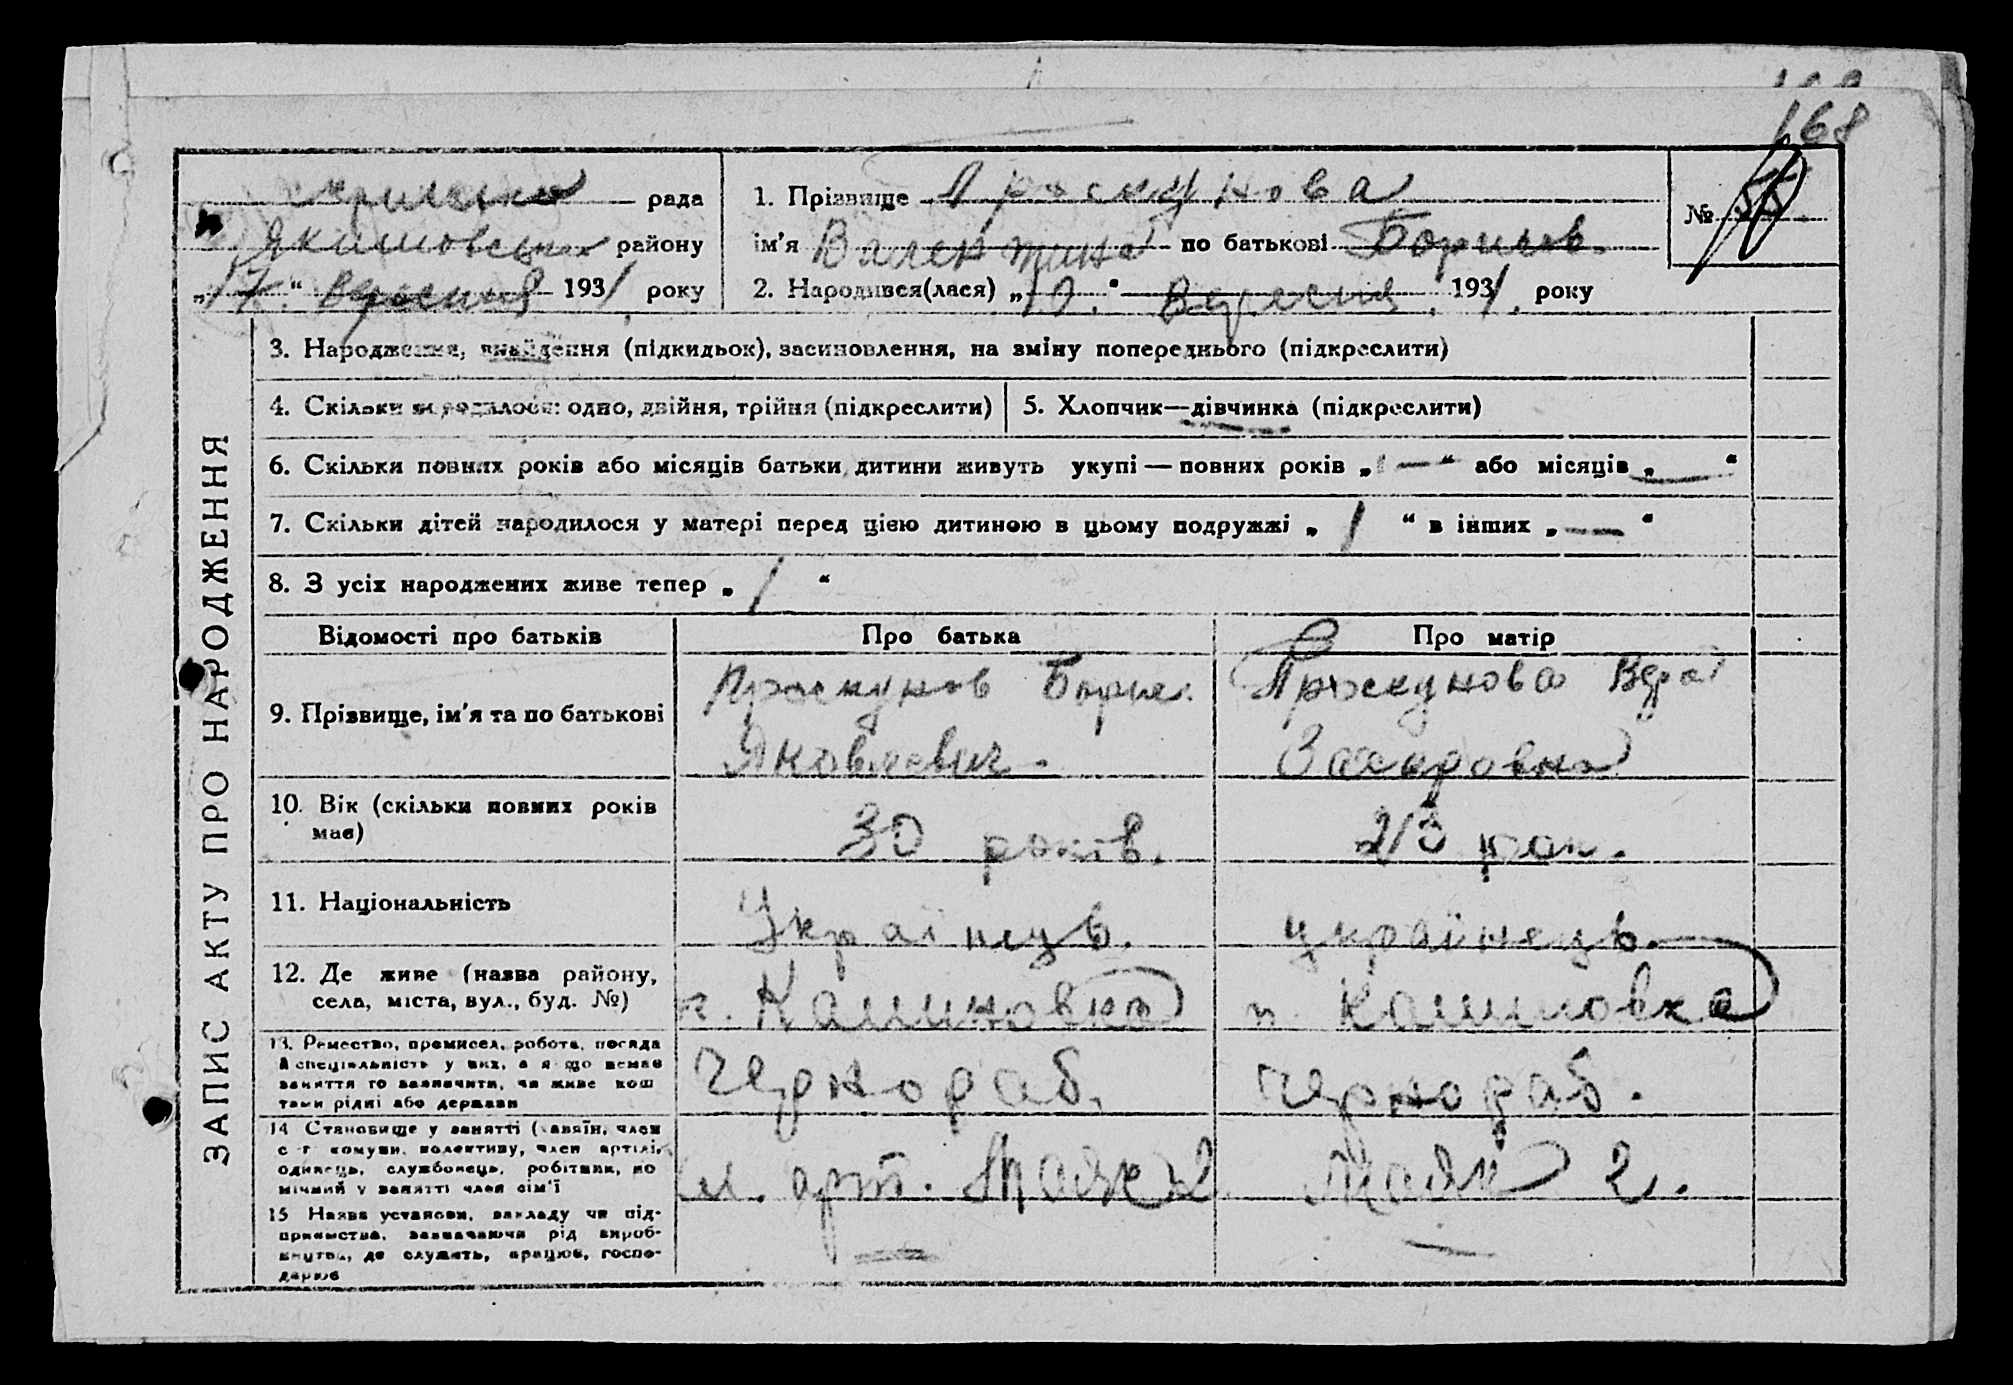 168
рада
1. Прізвище Проскунова
№
Якимовськ району
ім’я Валентина по батькові Борисов.
„17.“ Вересния 1931 року
2. Народився(лася) „10.“ Вересня 1931. року
ЗАПИС АКТУ ПРО НАРОДЖЕННЯ
3. Народження, знайдення (підкидьок), засиновлення, на зміну попереднього (підкреслити)
4. Скільки народилося: одно, двійня, трійня (підкреслити)
5. Хлопчик—дівчинка (підкреслити)
6. Скільки повних років або місяців батьки дитини живуть укупі — повних років „ — “ або місяців „ “
7. Скільки дітей народилося у матері перед цією дитиною в цьому подружжі „ 1 “ в інших „ — “
8. З усіх народжених живе тепер „ 1 “
Відомості про батьків
Про батька
Про матір
9. Прізвище, ім’я та по батькові
Проскунов Борис.
Яковлевич.
Проскунова Вера
Захаровна
10. Вік (скільки повних років має)
30 років.
23 рок.
11. Національність
Українць.
українець.
12. Де живе (назва району,
села, міста, вул., буд. №)
Калиновка
п. Калиновка
13. Ремество, промисел, робота, посада
й спеціяльність у них, а якщо немає
заняття то зазначити, чи живе кош
тами рідні або держави
Чернораб.
Чернораб.
14 Становище у занятті (хазяїн, член
с г комуни, колективу, член артілі,
одинець, службовець, робітник, по
мічний у занятті член сім’ї
арт. Маяк 2
Маяк 2.
15 Назва установи, закладу чи під-
приємства, зазначаючи рід вироб-
ництва, де служить, працює, госпо-
дарює
—
—